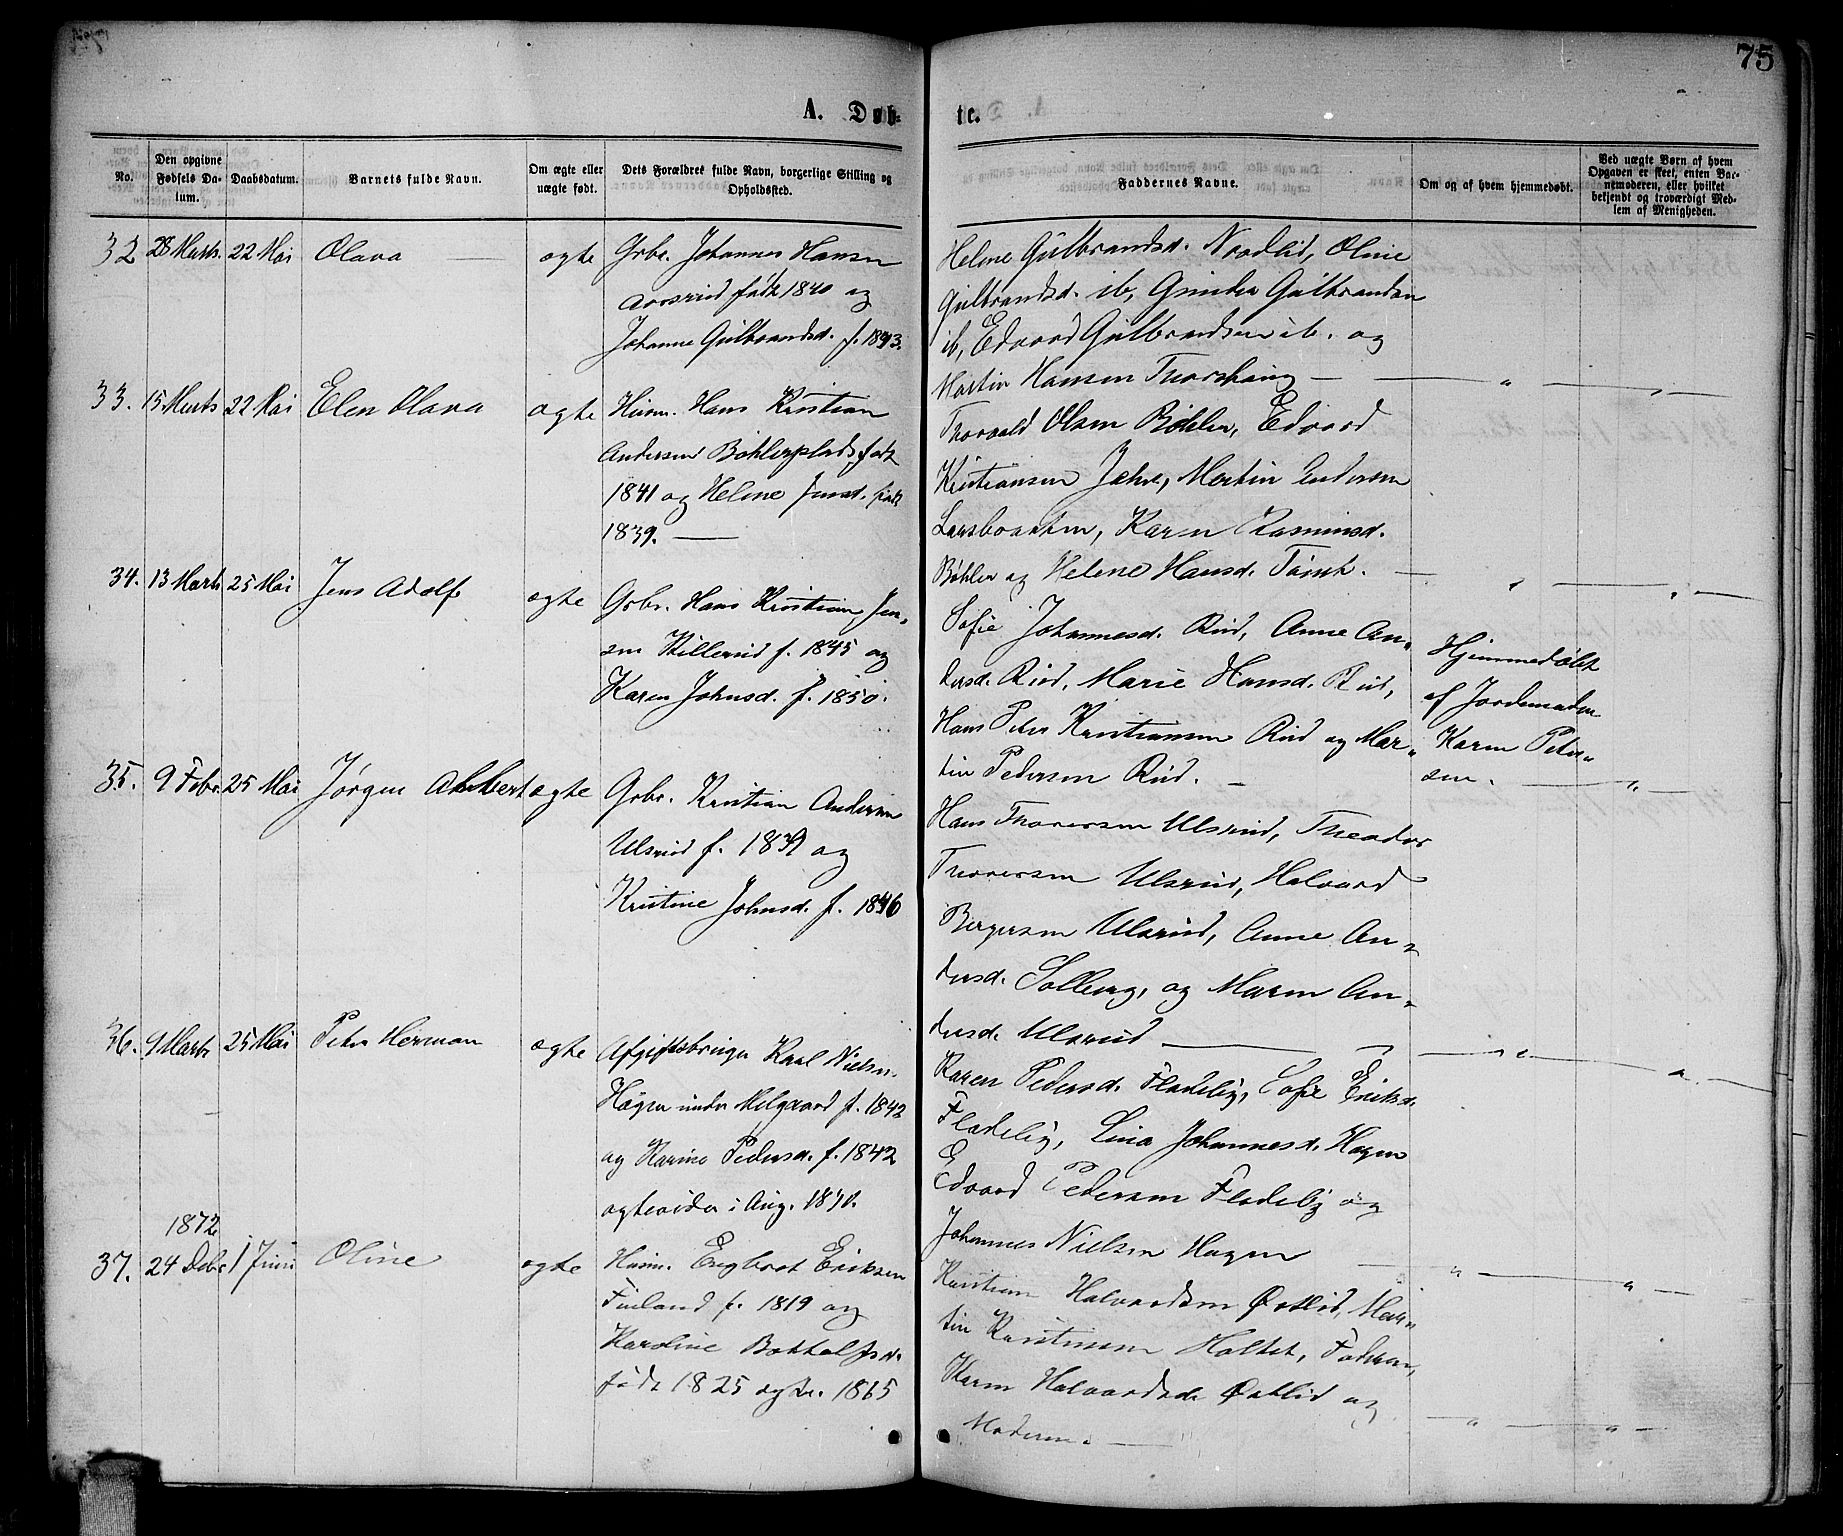 75
A. Døb-
te.
No.
Den opgivne Fødsels Datum.
Daabsdatum.
Barnets fulde Navn.
Om ægte eller uægte født.
Dets Forældres fulde Navn, borgerlige Stilling og Opholdssted.
Faddernes Navne.
Om og af hvem hjemmedøbt.
Ved uægte Børn af hvem Opgaven er skeet, enten Barnemoderen, eller hvilket bekjendt og troværdigt Medlem af Menigheden.
32 28 Marts. 22 Mai Olava — ægte
Grbr. Johannes Hansen
født 1840 og
Johanne Gulbrandsd. f. 1843.
Helene Gulbrandsd. Nordlid, Oline
Gulbrandsd. ib, Gulbrandsen
ib, Edvard Gulbrandsen ib. og
Martin Hansen Thorshaug —
33. 15 Marts 22 Mai Elen Olava ægte
Husm. Hans Kristian
Andersen Bøhlerplads født
1841 og Helene Jensd. født
1839. —
Thorvald Olsen Bøhler, Edvard
Kristiansen Jahr, Martin Andersen
Karen Rasmusd.
Bøhler og Helene Hansd.
34. 13 Marts 25 Mai Jens Adolf ægte
Grbr. Hans Kristian Jen-
sen Killerud f. 1845 og
Karen Johnsd. f. 1850.
Sofie Johannesd. Rud, Anne An-
dersd. Rud, Marie Hansd. Rud,
Hans Peter Kristiansen Rud og Mar-
tin Pedersen Rud. —
Hjemmedøbt
af Jordemoder
Karen Peter-
sen.
35. 9 Febr. 25 Mai Jørgen ægte
Grbr. Kristian Andersen
Ulsrud f. 1839 og
Kristine Johnsd. f. 1846
Hans Thoresen Ulsrud, Theodor
Thoresen Ulsrud, Halvard
Bergersen Ulsrud, Anne An-
dersd. Solberg, og Maren An-
dersd. Ulsrud —
36. 9 Marts 25 Mai Peter Herman ægte
Afgiftsbruger Karl Nielsen
Hagen under Melgaard f. 1842
og Karine Pedersd. f. 1842
ægteviet i Aug. 1870.
Karen Pedersd. Fladeby, Sofie Eriksd.
Fladeby, Lina Johannesd. Hagen
Edvard Pedersen Fladeby og
Johannes Nielsen Hagen
1872
37. 24 Debr. 1 Juni Oline ægte
Husm. Engbret Eriksen
Finland f. 1819 og
Karoline Bottolfsd.
født 1825 1865
Kristian Halvardsen Østlid, Mar-
tin Kristiansen Holtet, Faderen,
Karen Halvardsd. Østlid og
Moderen. —